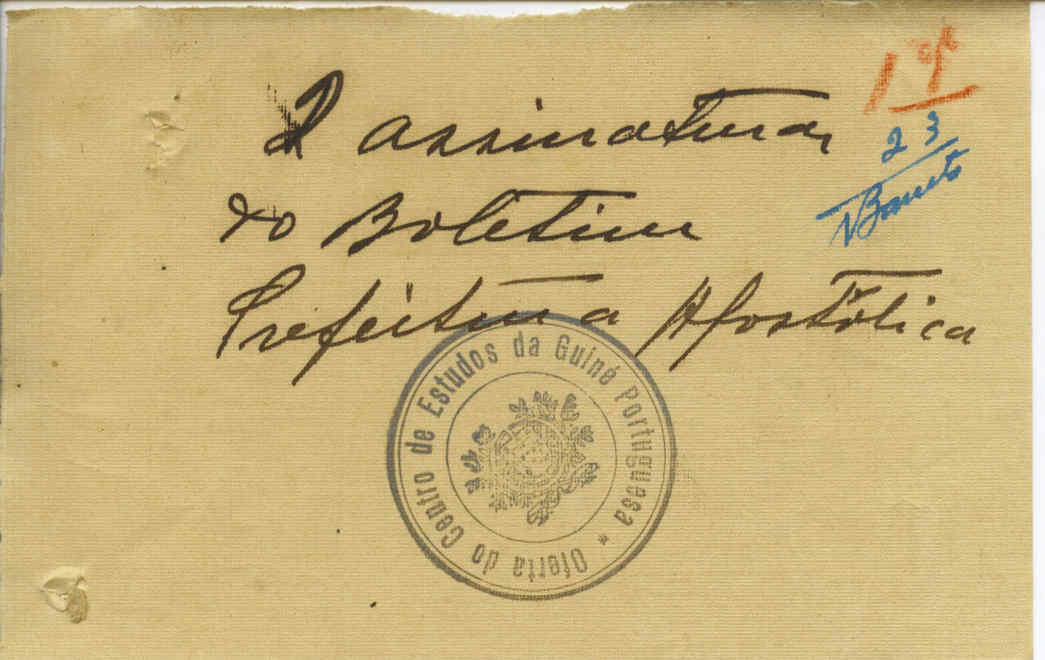 2 assinaturas
do Boletim
Prefeitura Apostólica
23
Oferta do Centro de Estudos da Guiné Portuguesa *